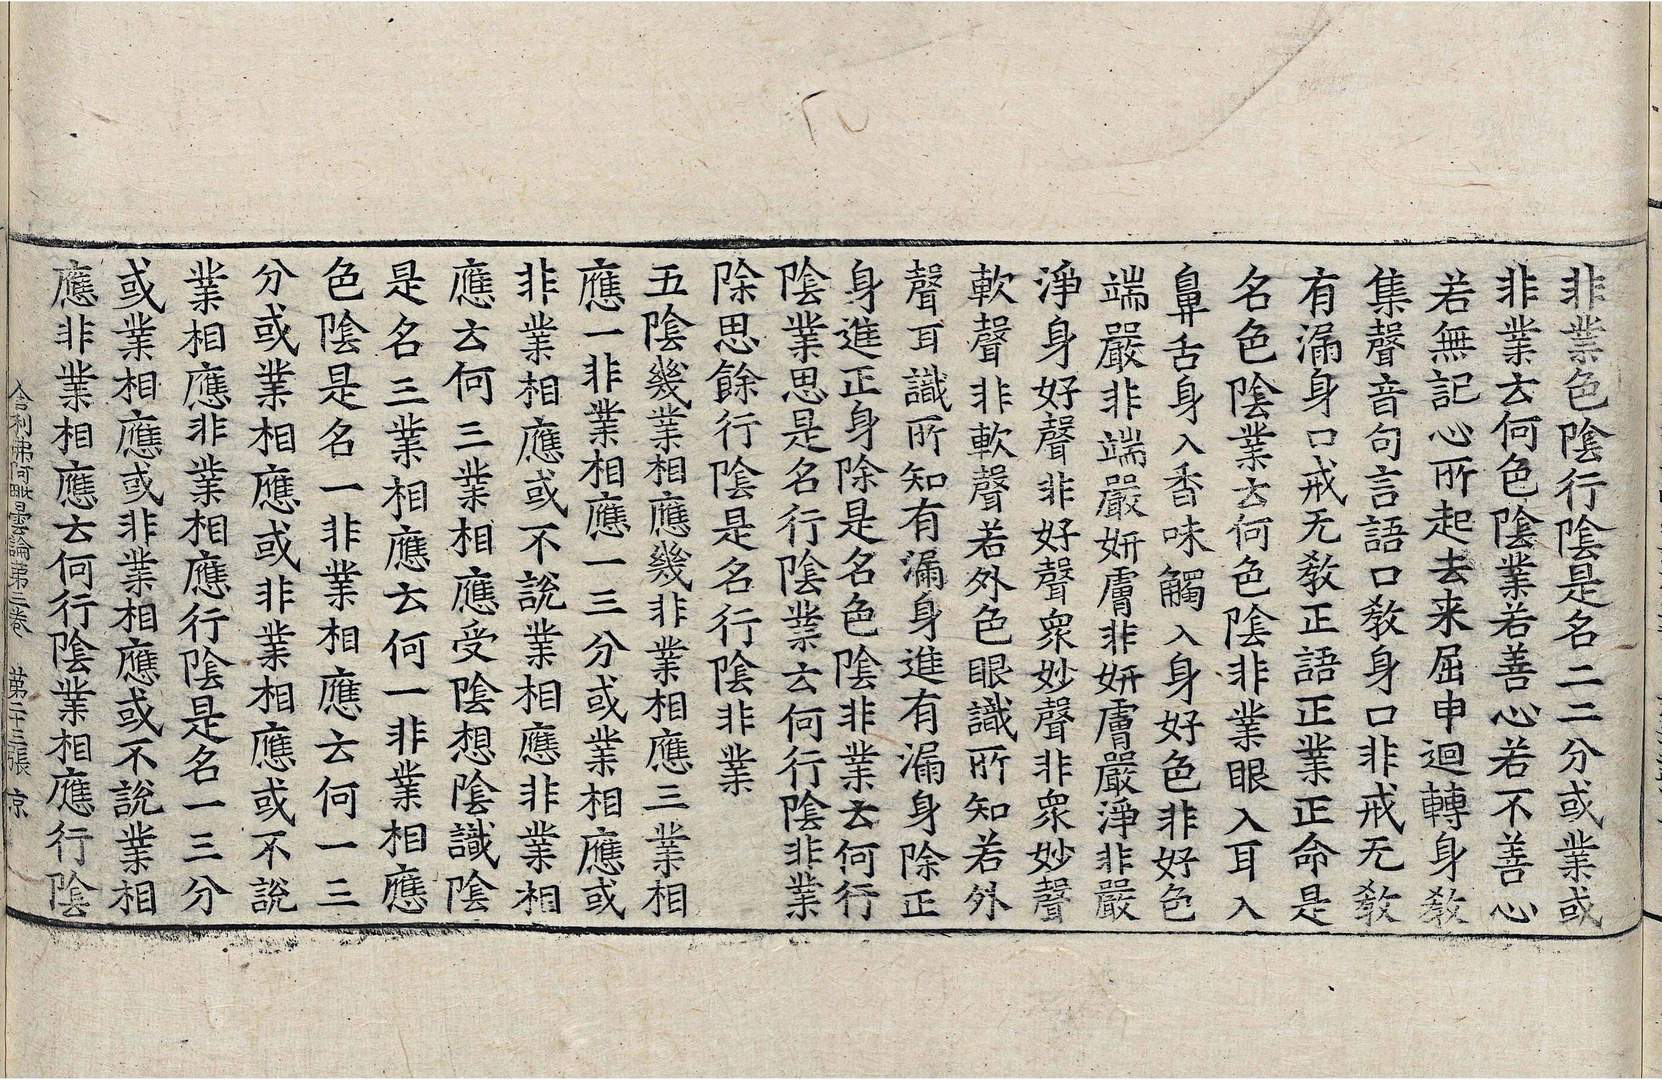 非業色陰行陰是名二二分或業或
非業去何色陰業若善心若不善心
若無記心所起去来屈申迴轉身敎
集聲音句言語口敎身口非戒无敎
有漏身口戒无敎正語正業正命是
名色陰業去何色陰非業眼入耳入
鼻舌身入香味觸入身好色非好色
端嚴非端嚴姸膚非姸膚嚴淨非嚴
淨身好聲非好聲衆妙聲非衆妙聲
軟聲非軟聲若外色眼識所知若外
聲耳識所知有漏身進有漏身除正
身進正身除是名色陰非業去何行
陰業思是名行陰業去何行陰非業
除思餘行陰是名行陰非業
五陰幾業相應幾非業相應三業相
應一非業相應一三分或業相應或
非業相應或不說業相應非業相
應去何三業相應受陰想陰識陰
是名三業相應去何一非業相應
色陰是名一非業相應去何一三
分或業相應或非業相應或不說
業相應非業相應行陰是名一三分
或業相應或非業相應或不說業相
應非業相應去何行陰業相應行陰
舍利弗阿毗曇論苐三卷 苐二十三張 京